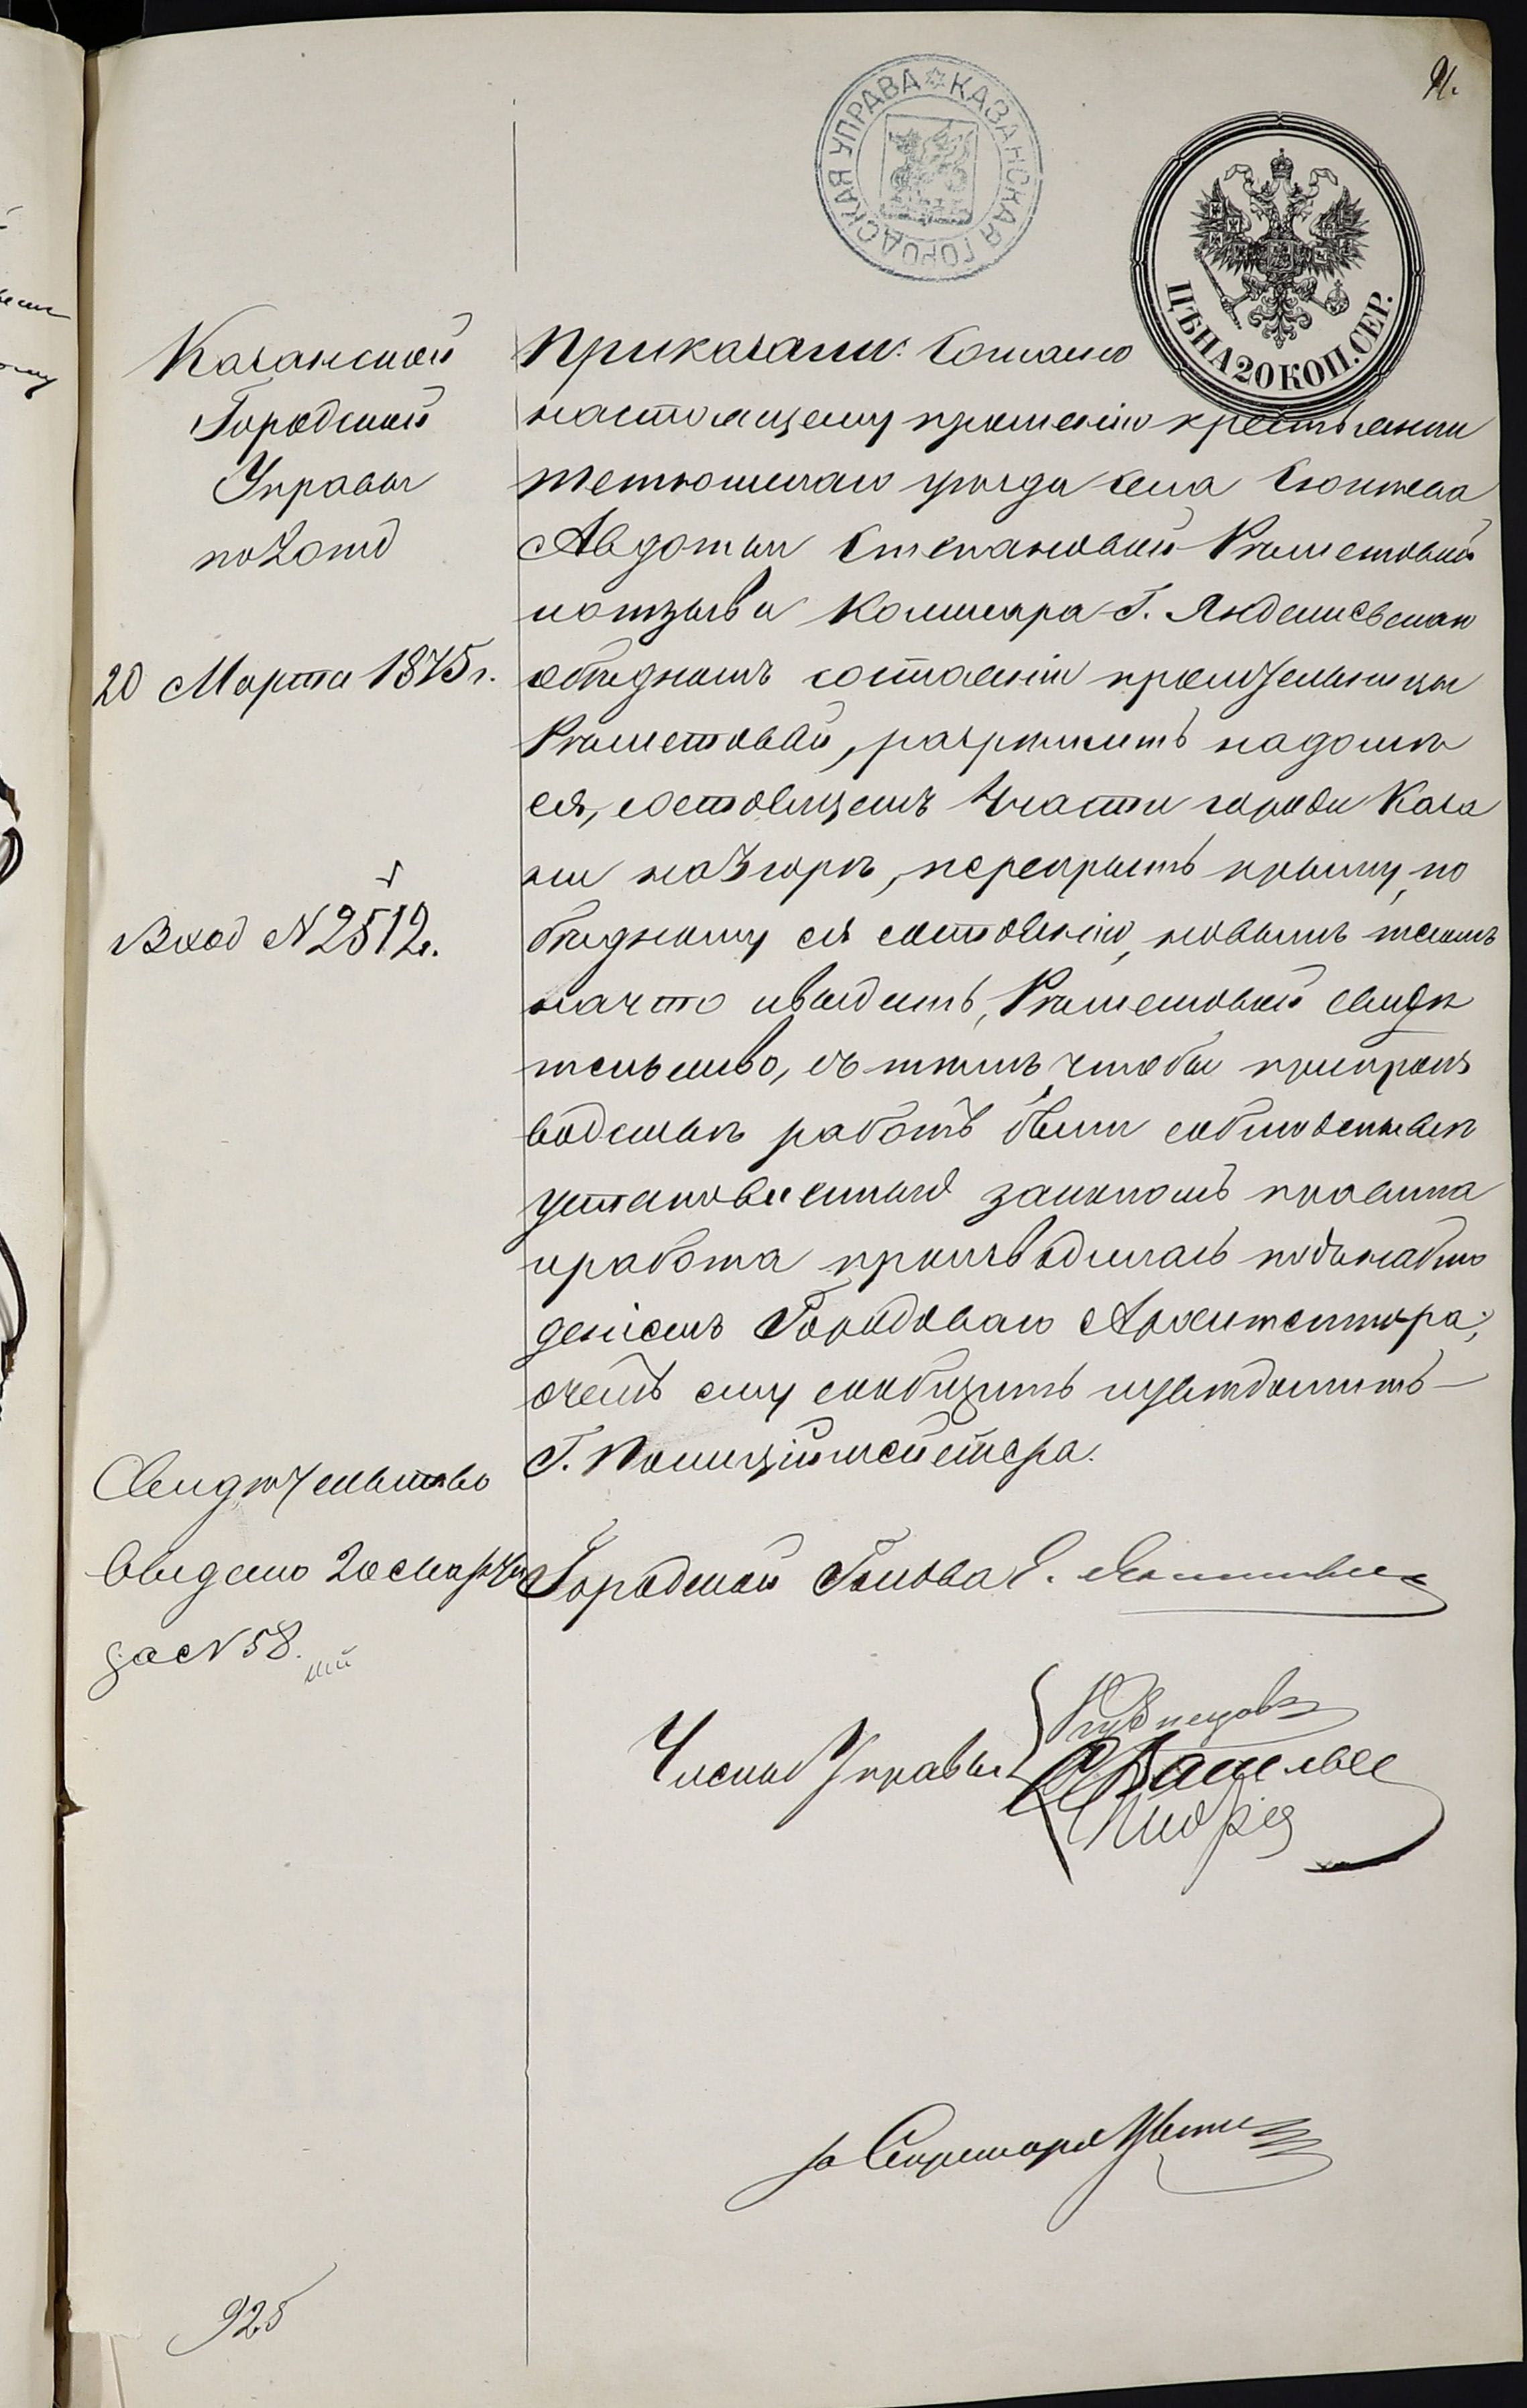 91.
КАЗАНСКАЯ ГОРОДСКАЯ УПРАВА
ЦѢНА 20 КОП. СЕР.
Казанской
Городской
Управы
по 2 отд
20 Марта 1875 г.
Вход № 2512.
Свидѣтельство
выдано 20 Марта
за № 58.
925
Приказали: Согласно
настоящему прошенію крестьянки
Тетюшскаго уѣзда села
Авдотьи Степановой
и отзыва Коммисара Г.
о бѣдномъ состояніи просительницы
разрѣшить на домѣ
ея, состоящемъ части города Каза
ни на 3 горѣ, перекрыть крышу, по
бѣдному ея состоянію, новымъ тесомъ
на что и выдать, свидѣ
тельство, съ тѣмъ, чтобы при произ
водствѣ работъ были соблюдены всѣ
установленныя закономъ правила
и работа производилась подъ наблю
деніемъ Городоваго Архитектора;
о чемъ ему сообщить и увѣдомить
Г. Полиціймейстера.
Городской Голова
Члены Управы
Кузнецовъ
за Секретаря